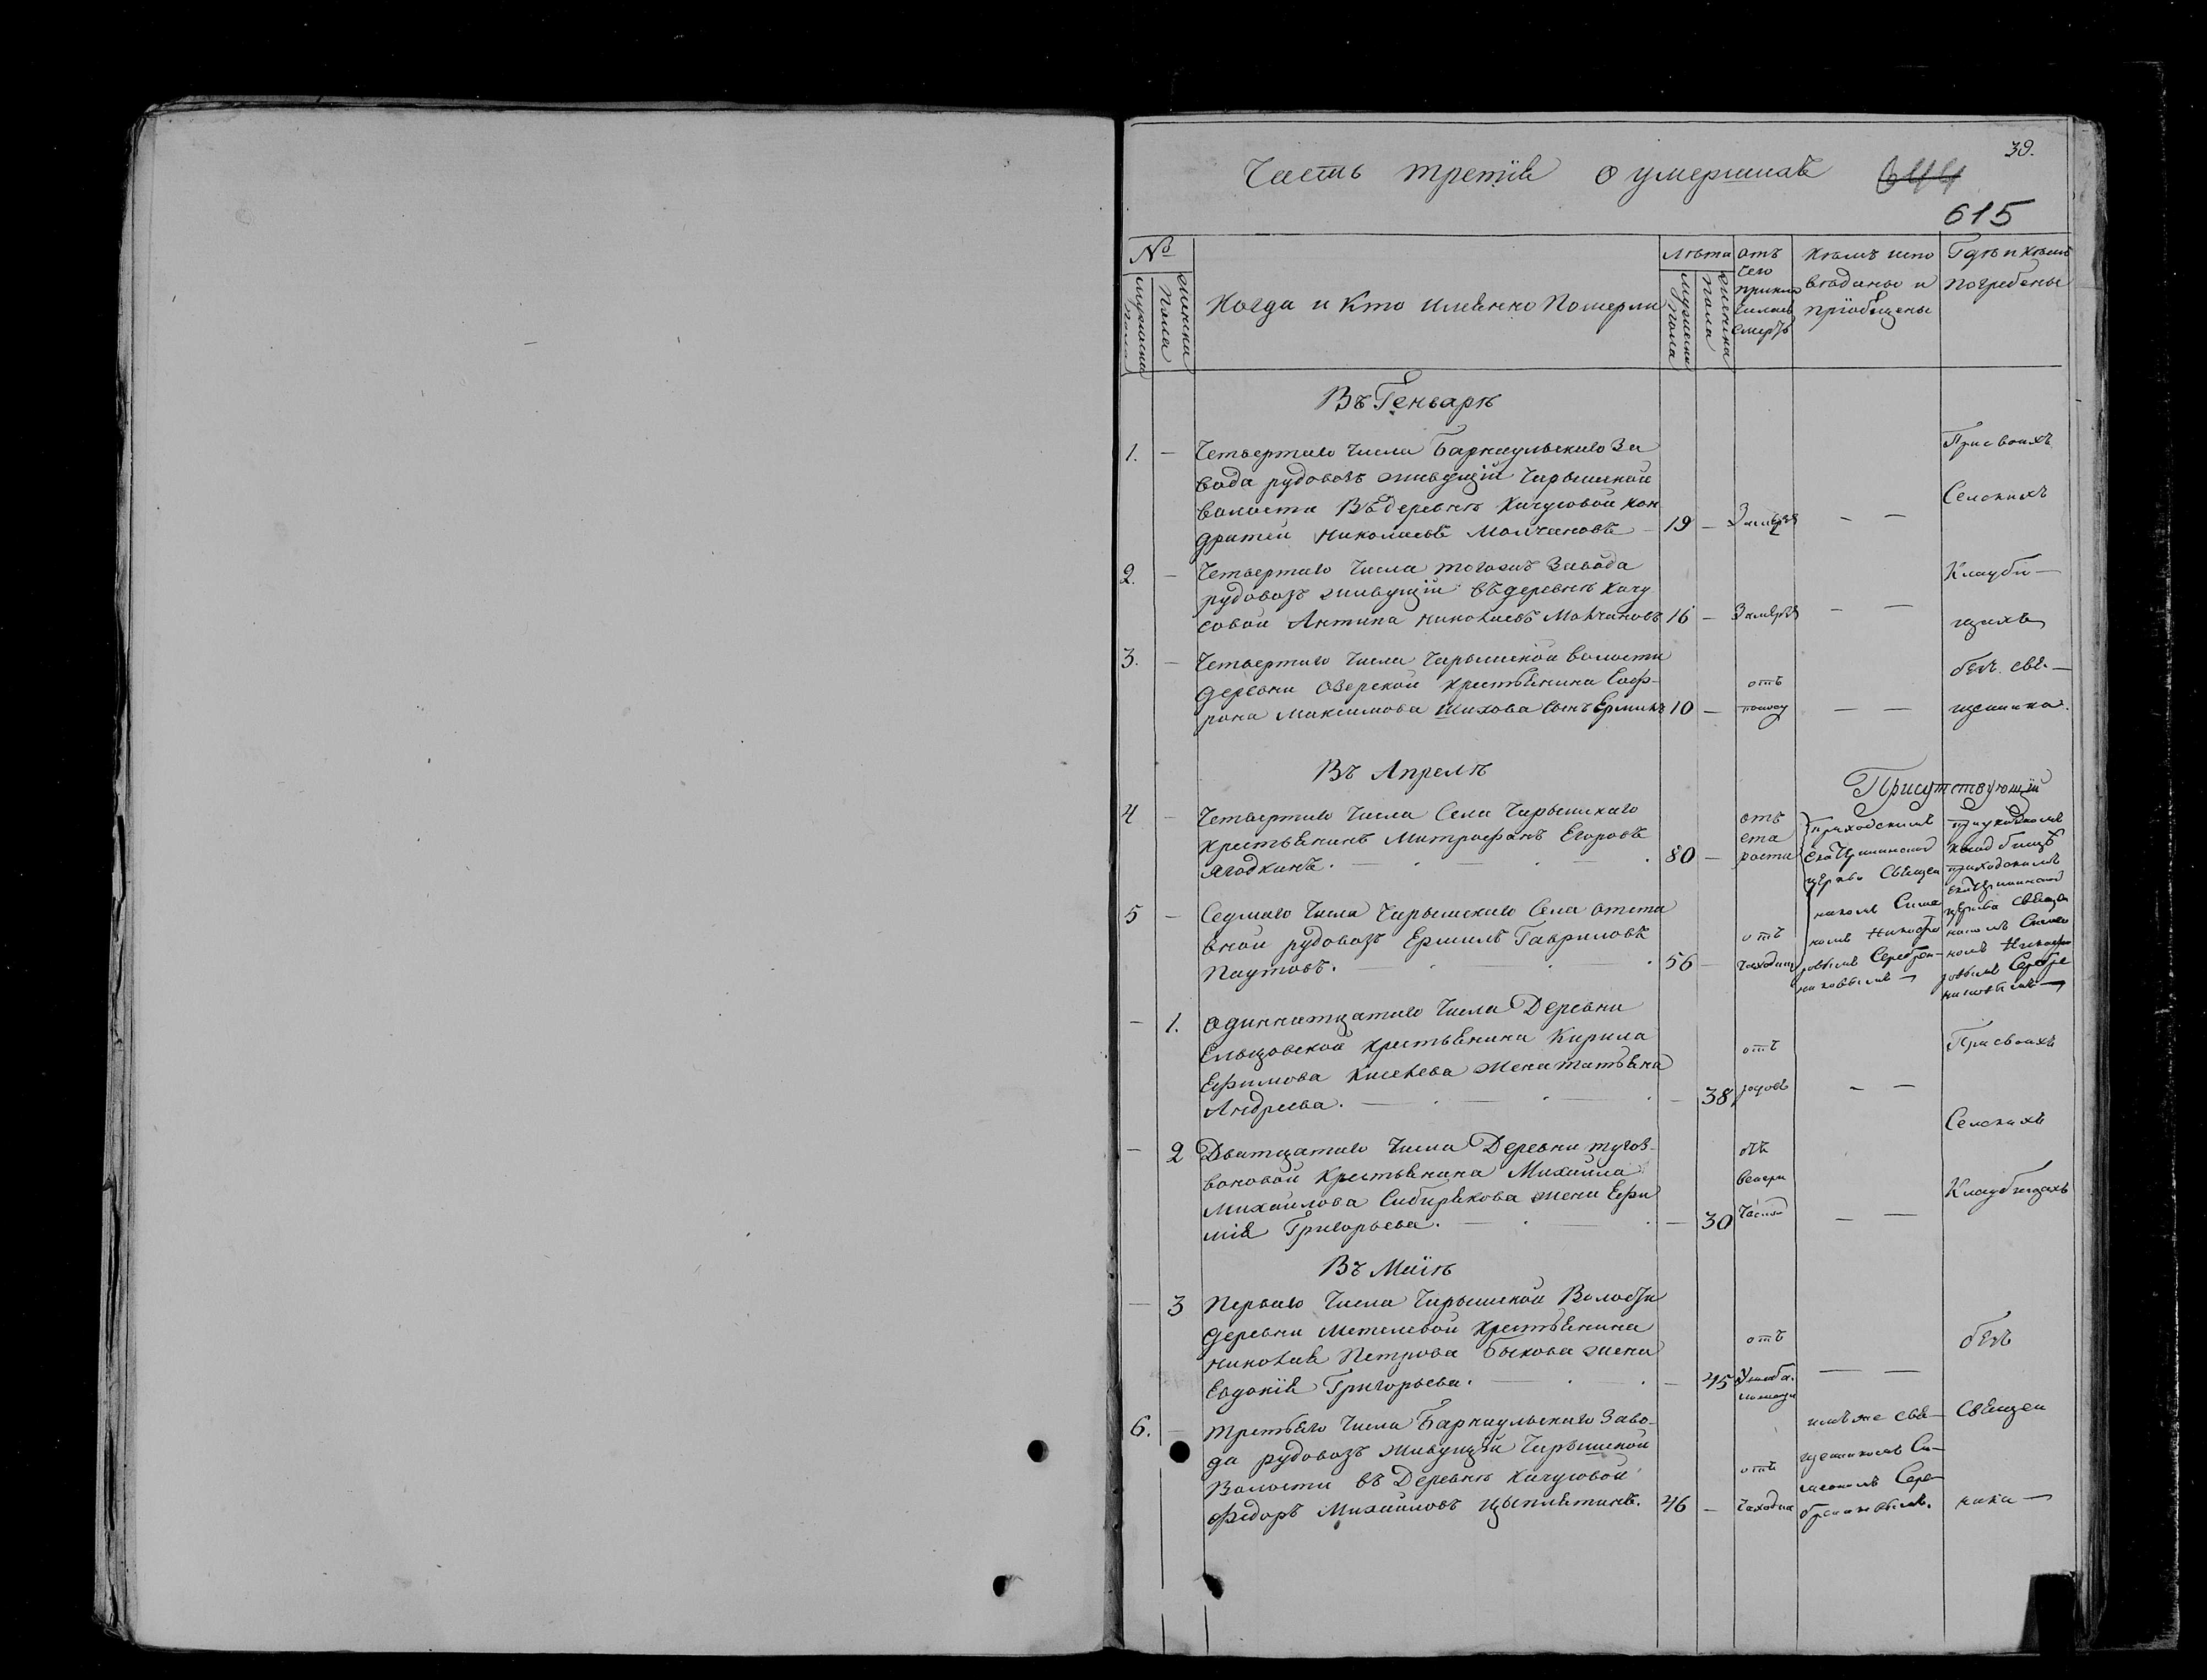 39.
Часть третія о умершихъ 644
615
№
мужеска пола
женска пола
Когда и Кто имянно Померли
лѣта
мужеска пола
женска пола
отъ чего приклю чилась смерть
Кѣмъ испо вѣданы и пріобщены
Гдѣ и Кѣмъ погребены
Въ Генварѣ
1. — Четвертаго числа Барнаульскаго За
вода рудовозъ живущій Чарышской
волости Въ деревнѣ Качусовой Кон
дратей Николаевъ Молчановъ — 19 — Замерзъ — —
При своихъ
Селскихъ
2. — Четвертаго числа тогожъ Завода
рудовозъ живущій въ деревнѣ Качу
совой Антипа Николаевъ Молчановъ 16 — Замерзъ — —
Кладби—
щахъ
3. — Четвертаго числа Чарышской волости
деревни Озерской крестьянина Соф-
рона Максимова Шихова сынъ Ермилъ 10 — отъ — —
безъ свя—
щенника.
Въ Апрелѣ
Присутствующій
4 — Четвертаго числа Села Чарышскаго
крестьянинъ Митрофанъ Егоровъ
Ягодкинъ. — 80 — отъ ста рости
5 — Седмаго числа Чарышскаго Села отста
вной рудовозъ Ермилъ Гавриловъ
Паутовъ. — 56 — отъ чахотки
приходскимъ
Екатерининской
церкви Священ
никомъ Симе
номъ Никифо
ровымъ Серебрен—
никовымъ —
при приходскомъ
кладбищѣ
приходскимъ
Екатерининской
церкви Священ
никомъ Симео
номъ Никифо
ровымъ Серебре
никовымъ —
— 1. Одиннатцатаго числа Деревни
Ельцовской крестьянина Кирила
Ефимова Киселева жена Татьяна
Андреева. — 38 отъ родовъ — —
При своихъ
— 2 Дватцатаго числа Деревни тугоз-
воновой Крестьянина Михаила
Михайлова Сибирякова жена Ефи
мія Григорьева. — 30 отъ — —
Селскихъ
Кладбищахъ
Въ Маіѣ
— 3 Перваго числа Чарышской Волости
деревни Метелевой крестьянина
Николая Петрова Быкова жена
Евдокія Григорьева. — 45 отъ — —
безъ
6. — Третьяго числа Барнаульскаго Заво-
да рудовозъ живущій Чарышской
Волости въ Деревнѣ Качусовой
Федоръ Михайловъ Цыплятинъ. 46 — отъ чахотки
имъ же свя—
щенникомъ Си—
меономъ Сере—
брениковымъ.
Священ
ника —